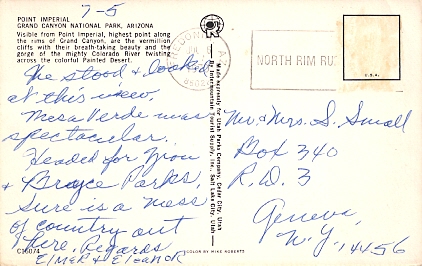 7-5
POINT IMPERIAL
GRAND CANYON NATIONAL PARK, ARIZONA
Visible from Point Imperial, highest point along
the rims of Grand Canyon, are the vermillion
cliffs with their breath-taking beauty and the
gorge of the mighty Colorado River twisting
across the colorful Painted Desert.
We stood & looked
at this view.
Mesa Verde was
spectacular.
Headed for Zion
& Bryce Parks.
Sure is a mess
of country out
here. Regards
Elmer & Eleanor
C16074
COLOR BY MIKE ROBERTS
Made expressly for Utah Parks Company, Cedar City, Utah
By Intermountain Tourist Supply, Inc., Salt Lake City, Utah
JUL
NORTH RIM RU
U.S.A.
Mr & Mrs. S. Small
Box 340
R.D. 3
Geneva,
N.Y. 14456